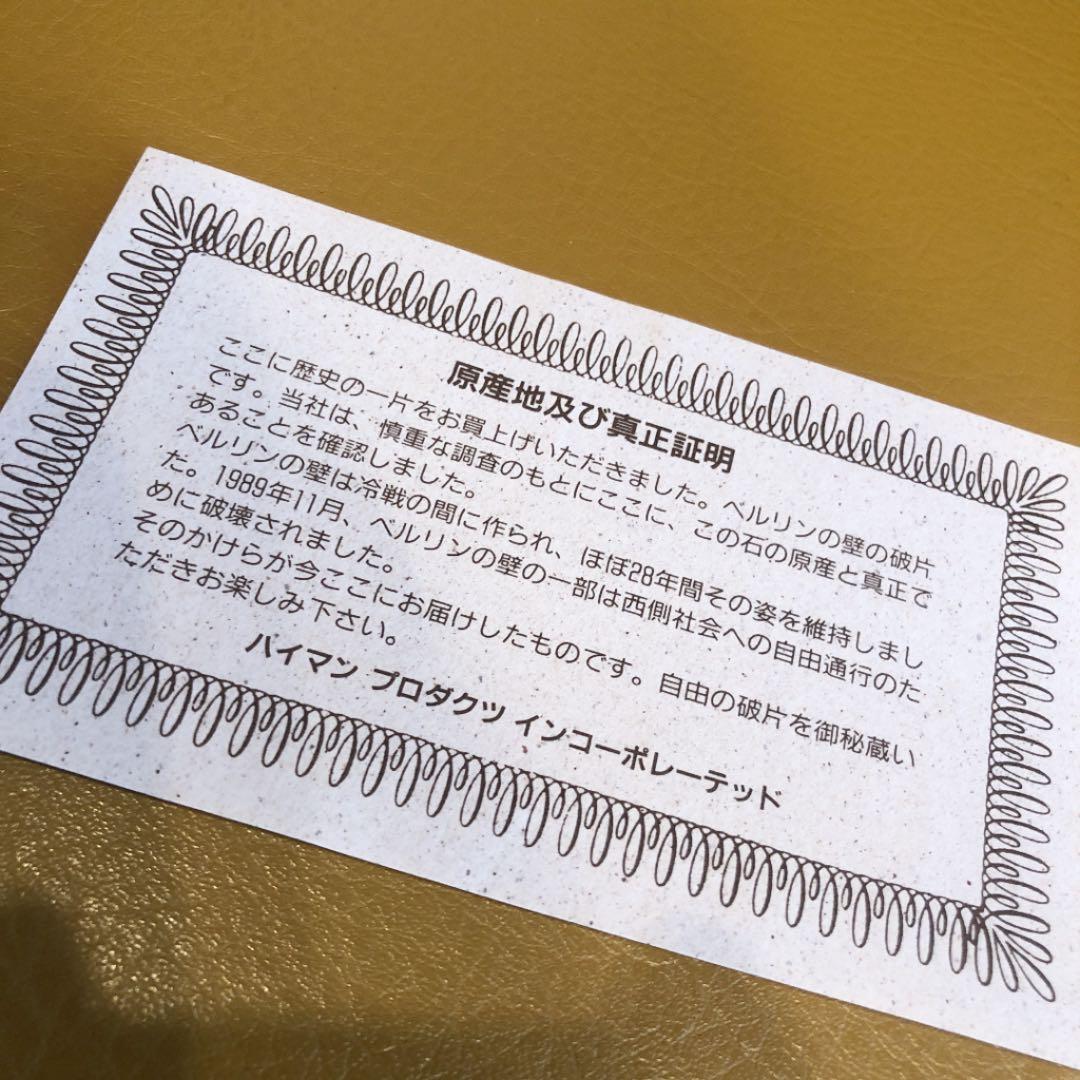 原産地及び真正証明
ここに歴史の一片をお買上げいただきました。ベルリンの壁の破片
です。当社は、慎重な調査のもとにここに、この石の原産と真正で
あることを確認しました。
ベルリンの壁は冷戦の間に作られ、ほぼ28年間その姿を維持しまし
た。1989年11月、ベルリンの壁の一部は西側社会への自由通行のた
めに破壊されました。
そのかけらが今ここにお届けしたものです。自由の破片を御秘蔵い
ただきお楽しみ下さい。
ハイマン プロダクツ インコーポレーテッド